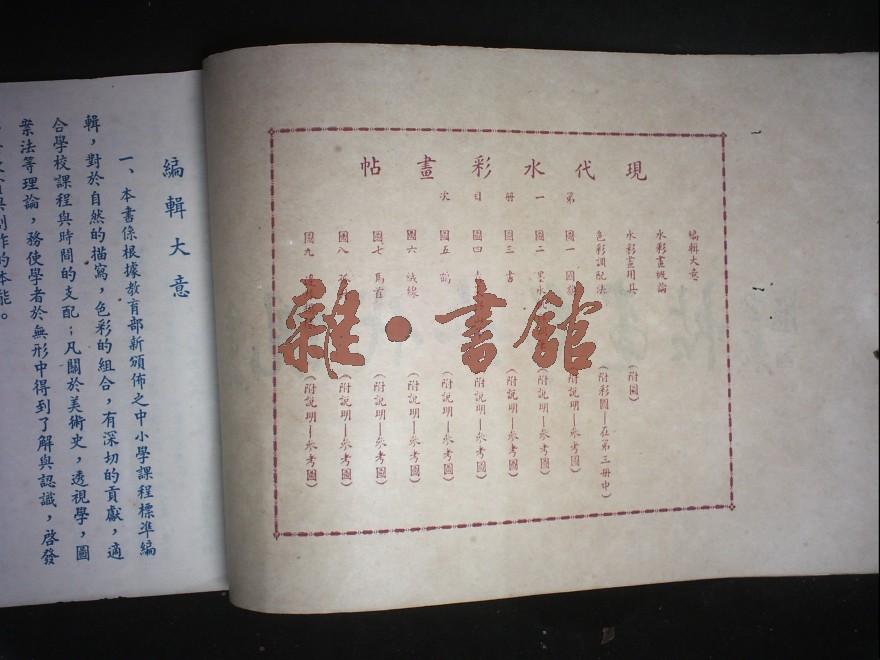 現代水彩畫帖
第一冊目次
編輯大意
水彩畫概論
水彩畫用具(附圖)
色彩調配法(附彩圖—在第三冊中)
圖一(附說明—參考圖)
圖二(附說明—參考圖)
圖三 書(附說明—參考圖)
圖四(附說明—參考圖)
圖五(附說明—參考圖)
圖六 絨線(附說明—參考圖)
圖七 馬首(附說明—參考圖)
圖八(附說明—參考圖)
圖九(附說明—參考圖)
雜·書館
編輯大意
一、本書係根據教育部新頒佈之中小學課程標準編
輯,對於自然的描寫,色彩的組合,有深切的貢獻,適
合學校課程與時間的支配;凡關於美術史,透視學,圖
案法等理論,務使學者於無形中得到了解與認識,啓發
創作的本能。